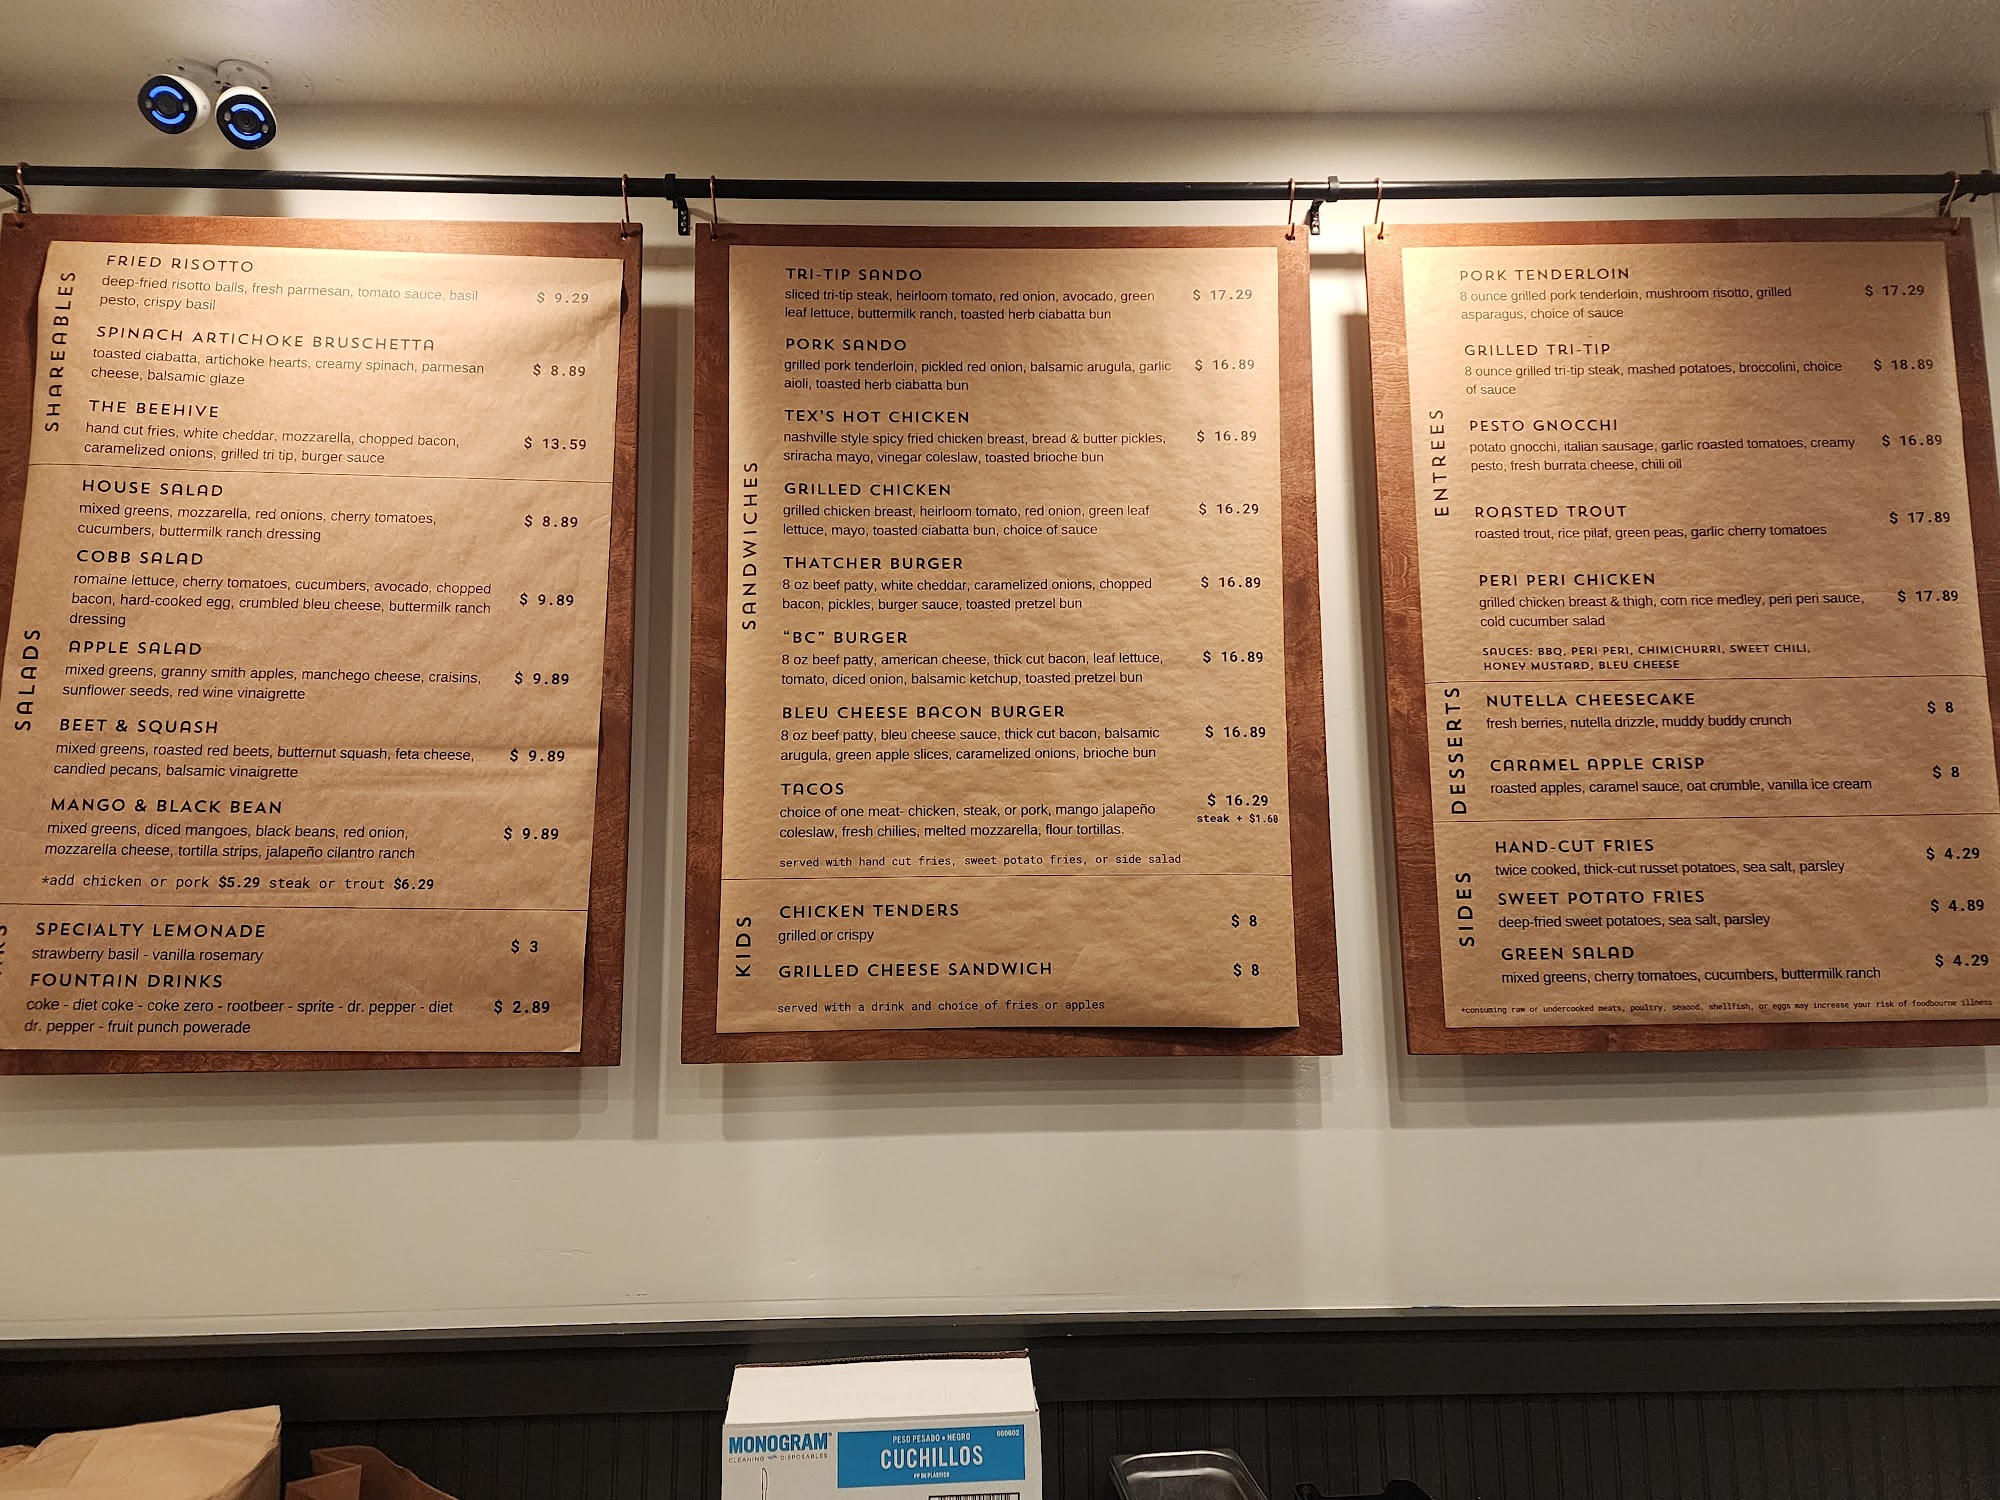 SHAREABLES
FRIED RISOTTO
deep-fried risotto balls, fresh parmesan, tomato sauce, basil
pesto, crispy basil
$ 9.29
SPINACH ARTICHOKE BRUSCHETTA
toasted ciabatta, artichoke hearts, creamy spinach, parmesan
cheese, balsamic glaze
$ 8.89
THE BEEHIVE
hand cut fries, white cheddar, mozzarella, chopped bacon,
caramelized onions, grilled tri tip, burger sauce
$ 13.59
SALADS
HOUSE SALAD
mixed greens, mozzarella, red onions, cherry tomatoes,
cucumbers, buttermilk ranch dressing
$ 8.89
COBB SALAD
romaine lettuce, cherry tomatoes, cucumbers, avocado, chopped
bacon, hard-cooked egg, crumbled bleu cheese, buttermilk ranch
dressing
$ 9.89
APPLE SALAD
mixed greens, granny smith apples, manchego cheese, craisins,
sunflower seeds, red wine vinaigrette
$ 9.89
BEET & SQUASH
mixed greens, roasted red beets, butternut squash, feta cheese,
candied pecans, balsamic vinaigrette
$ 9.89
MANGO & BLACK BEAN
mixed greens, diced mangoes, black beans, red onion,
mozzarella cheese, tortilla strips, jalapeño cilantro ranch
$ 9.89
*add chicken or pork $5.29 steak or trout $6.29
SPECIALTY LEMONADE
strawberry basil - vanilla rosemary
$ 3
FOUNTAIN DRINKS
coke - diet coke - coke zero - rootbeer - sprite - dr. pepper - diet
dr. pepper - fruit punch powerade
$ 2.89
SANDWICHES
TRI-TIP SANDO
sliced tri-tip steak, heirloom tomato, red onion, avocado, green
leaf lettuce, buttermilk ranch, toasted herb ciabatta bun
$ 17.29
PORK SANDO
grilled pork tenderloin, pickled red onion, balsamic arugula, garlic
aioli, toasted herb ciabatta bun
$ 16.89
TEX'S HOT CHICKEN
nashville style spicy fried chicken breast, bread & butter pickles,
sriracha mayo, vinegar coleslaw, toasted brioche bun
$ 16.89
GRILLED CHICKEN
grilled chicken breast, heirloom tomato, red onion, green leaf
lettuce, mayo, toasted ciabatta bun, choice of sauce
$ 16.29
THATCHER BURGER
8 oz beef patty, white cheddar, caramelized onions, chopped
bacon, pickles, burger sauce, toasted pretzel bun
$ 16.89
"BC" BURGER
8 oz beef patty, american cheese, thick cut bacon, leaf lettuce,
tomato, diced onion, balsamic ketchup, toasted pretzel bun
$ 16.89
BLEU CHEESE BACON BURGER
8 oz beef patty, bleu cheese sauce, thick cut bacon, balsamic
arugula, green apple slices, caramelized onions, brioche bun
$ 16.89
TACOS
choice of one meat- chicken, steak, or pork, mango jalapeño
coleslaw, fresh chilies, melted mozzarella, flour tortillas.
$ 16.29
steak + $1.60
served with hand cut fries, sweet potato fries, or side salad
KIDS
CHICKEN TENDERS
grilled or crispy
$ 8
GRILLED CHEESE SANDWICH
$ 8
served with a drink and choice of fries or apples
ENTREES
PORK TENDERLOIN
8 ounce grilled pork tenderloin, mushroom risotto, grilled
asparagus, choice of sauce
$ 17.29
GRILLED TRI-TIP
8 ounce grilled tri-tip steak, mashed potatoes, broccolini, choice
of sauce
$ 18.89
PESTO GNOCCHI
potato gnocchi, italian sausage, garlic roasted tomatoes, creamy
pesto, fresh burrata cheese, chili oil
$ 16.89
ROASTED TROUT
roasted trout, rice pilaf, green peas, garlic cherry tomatoes
$ 17.89
PERI PERI CHICKEN
grilled chicken breast & thigh, corn rice medley, peri peri sauce,
cold cucumber salad
$ 17.89
SAUCES: BBQ, PERI PERI, CHIMICHURRI, SWEET CHILI,
HONEY MUSTARD, BLEU CHEESE
DESSERTS
NUTELLA CHEESECAKE
fresh berries, nutella drizzle, muddy buddy crunch
$ 8
CARAMEL APPLE CRISP
roasted apples, caramel sauce, oat crumble, vanilla ice cream
$ 8
SIDES
HAND-CUT FRIES
twice cooked, thick-cut russet potatoes, sea salt, parsley
$ 4.29
SWEET POTATO FRIES
deep-fried sweet potatoes, sea salt, parsley
$ 4.89
GREEN SALAD
mixed greens, cherry tomatoes, cucumbers, buttermilk ranch
$ 4.29
*consuming raw or undercooked meats, poultry, seaood, shellfish, or eggs may increase your risk of foodbourne illness
MONOGRAM
CLEANING DISPOSABLES
PESO PESADO • NEGRO
000602
CUCHILLOS
PP DE PLÁSTICO